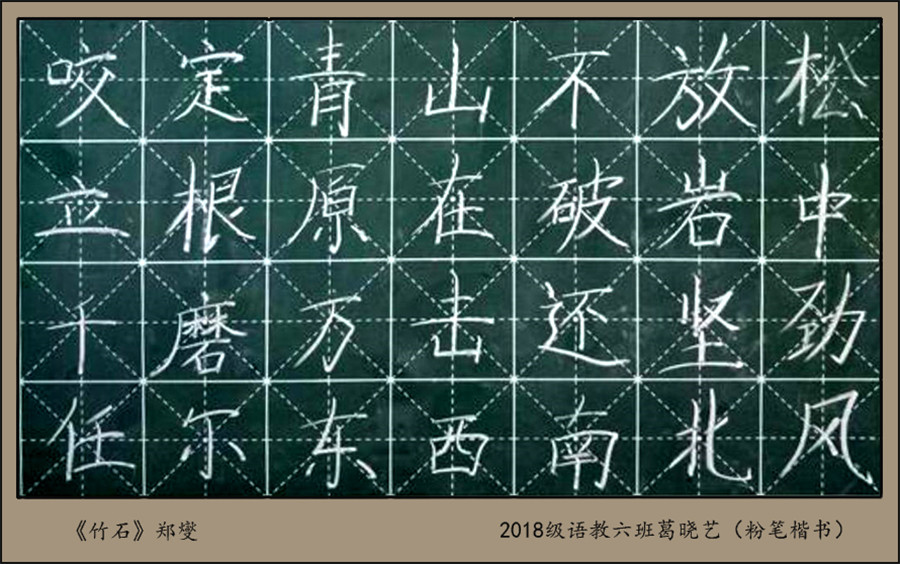 咬定青山不放松
立根原在破岩中
千磨万击还坚劲
任尔东西南北风
《竹石》郑燮
2018级语教六班葛晓艺（粉笔楷书）